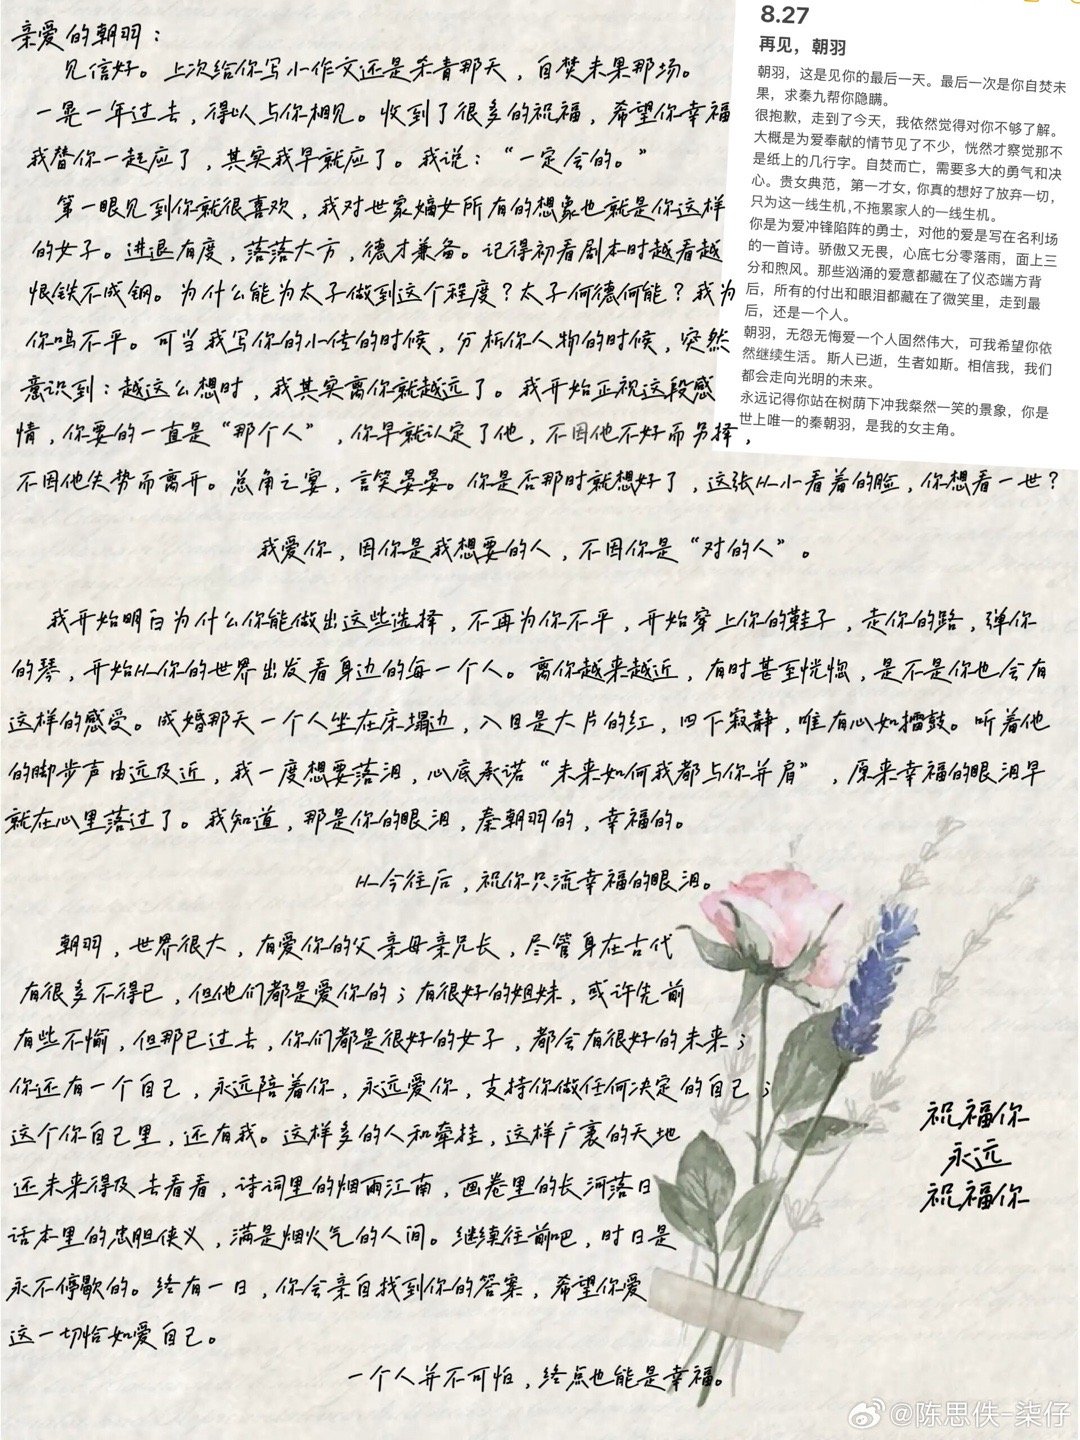 亲爱的朝羽：
见信好。上次给你写小作文还是杀青那天，自焚未果那场。
一晃一年过去，得以与你相见。收到了很多的祝福，希望你幸福
我替你一起应了，其实我早就应了。我说：“一定会的。”
第一眼见到你就很喜欢，我对世家嫡女所有的想象也就是你这样
的女子。进退有度，落落大方，德才兼备。记得初看剧本时越看越
恨铁不成钢。为什么能为太子做到这个程度？太子何德何能？我为
你鸣不平。可当我写你的小传的时候，分析你人物的时候，突然
意识到：越这么想时，我其实离你就越远了。我开始正视这段感
情，你要的一直是“那个人”，你早就认定了他，不因他不好而另择，
不因他失势而离开。总角之宴，言笑晏晏。你是否那时就想好了，这张从小看着的脸，你想看一世？
我爱你，因你是我想要的人，不因你是“对的人”。
我开始明白为什么你能做出这些选择，不再为你不平，开始穿上你的鞋子，走你的路，弹你
的琴，开始从你的世界出发看身边的每一个人。离你越来越近，有时甚至恍惚，是不是你也会有
这样的感受。成婚那天一个人坐在床塌边，入目是大片的红，四下寂静，唯有心如擂鼓。听着他
的脚步声由远及近，我一度想要落泪，心底承诺“未来如何我都与你并肩”，原来幸福的眼泪早
就在心里落过了。我知道，那是你的眼泪，秦朝羽的，幸福的。
从今往后，祝你只流幸福的眼泪。
朝羽，世界很大，有爱你的父亲母亲兄长，尽管身在古代
有很多不得已，但他们都是爱你的；有很好的姐妹，或许先前
有些不愉，但那已过去，你们都是很好的女子，都会有很好的未来；
你还有一个自己，永远陪着你，永远爱你，支持你做任何决定的自己；
这个你自己里，还有我。这样多的人和牵挂，这样广袤的天地
还未来得及去看看，诗词里的烟雨江南，画卷里的长河落日
话本里的忠胆侠义，满是烟火气的人间。继续往前吧，时日是
永不停歇的。终有一日，你会亲自找到你的答案，希望你爱
这一切恰如爱自己。
一个人并不可怕，终点也能是幸福。
祝福你
永远
祝福你
8.27
再见，朝羽
朝羽，这是见你的最后一天。最后一次是你自焚未
果，求秦九帮你隐瞒。
很抱歉，走到了今天，我依然觉得对你不够了解。
大概是为爱奉献的情节见了不少，恍然才察觉那不
是纸上的几行字。自焚而亡，需要多大的勇气和决
心。贵女典范，第一才女，你真的想好了放弃一切，
只为这一线生机，不拖累家人的一线生机。
你是为爱冲锋陷阵的勇士，对他的爱是写在名利场
的一首诗。骄傲又无畏，心底七分零落雨，面上三
分和煦风。那些汹涌的爱意都藏在了仪态端方背
后，所有的付出和眼泪都藏在了微笑里，走到最
后，还是一个人。
朝羽，无怨无悔爱一个人固然伟大，可我希望你依
然继续生活。斯人已逝，生者如斯。相信我，我们
都会走向光明的未来。
永远记得你站在树荫下冲我粲然一笑的景象，你是
世上唯一的秦朝羽，是我的女主角。
@陈思佚-柒仔